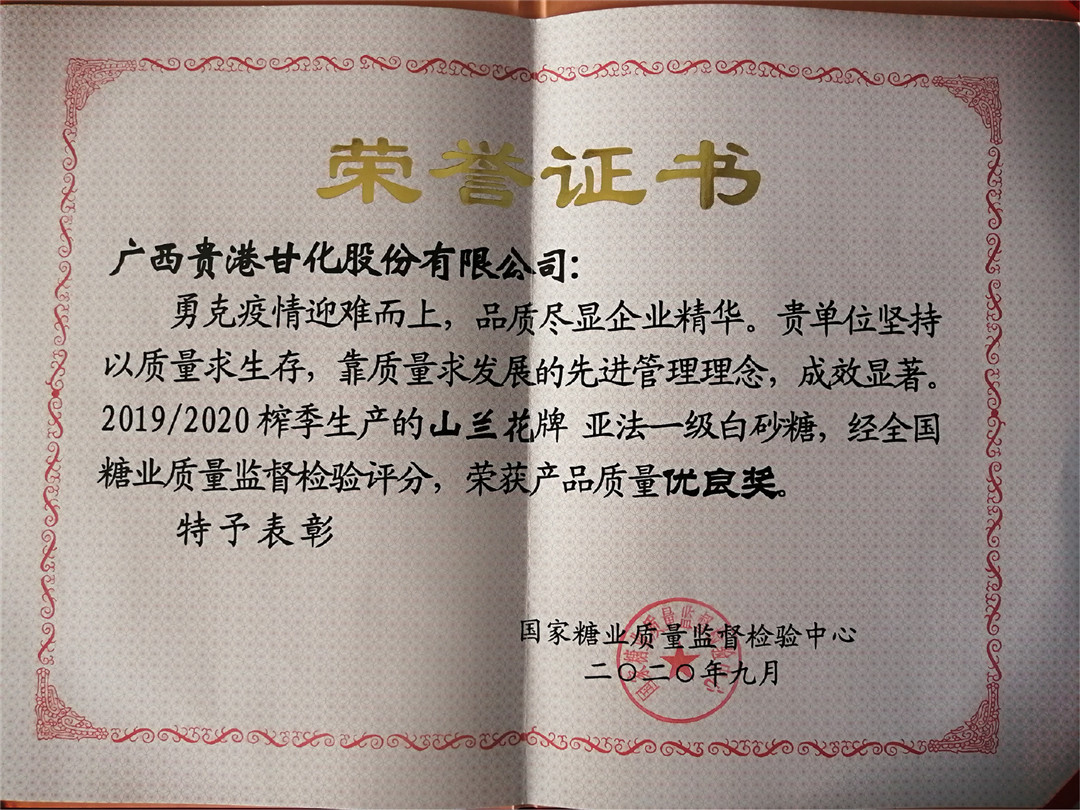 荣誉证书
广西贵港甘化股份有限公司：
勇克疫情迎难而上，品质尽显企业精华。贵单位坚持
以质量求生存，靠质量求发展的先进管理理念，成效显著。
2019/2020 榨季生产的山兰花牌 亚法一级白砂糖，经全国
糖业质量监督检验评分，荣获产品质量优良奖。
特予表彰
国家糖业质量监督检验中心
二〇二〇年九月